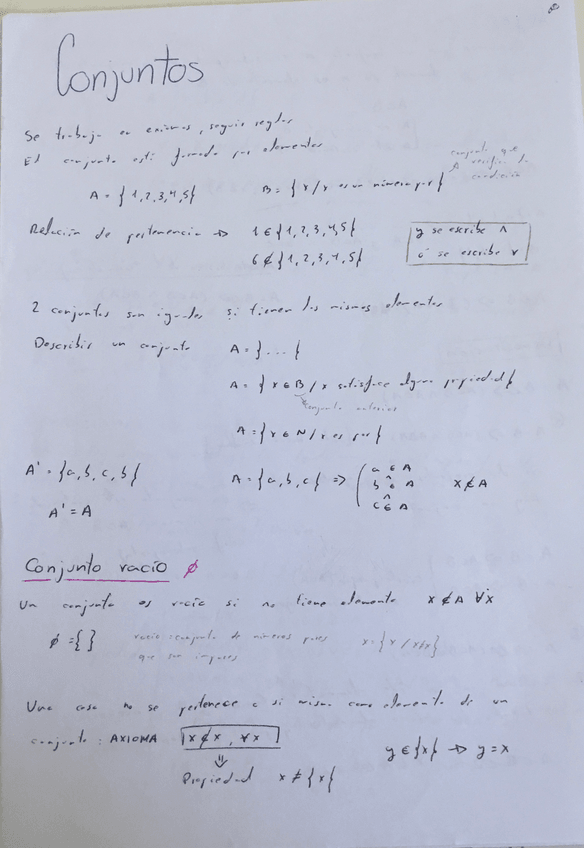 Conjuntos
Se trabaja en axiomas, seguir reglas
El conjunto está formado por elementos
A = {1,2,3,4,5} B = {x/x es un número par} conjunto que verifica la condición
Relación de pertenencia → 1 ∈ {1,2,3,4,5}
6 ∉ {1,2,3,4,5}
y se escribe ∧
ó se escribe ∨
2 conjuntos son iguales si tienen los mismos elementos
Describir un conjunto A = {...}
A = {x ∈ B / x satisface alguna propiedad}
conjunto
A = {x ∈ N / x es par}
A' = {a, b, c, b} A = {a, b, c} ⇒ a ∈ A ∧ b ∈ A ∧ c ∈ A x ∉ A
A' = A
Conjunto vacío ∅
Un conjunto es vacío si no tiene elemento x ∉ A ∀x
∅ = {} vacío = conjunto de números pares x = {x / x≠x}
que son impares
Una cosa no se pertenece a si misma como elemento de un
conjunto: AXIOMA x ∉ x, ∀x y ∈ {x} → y = x
⇓
Propiedad x ≠ {x}